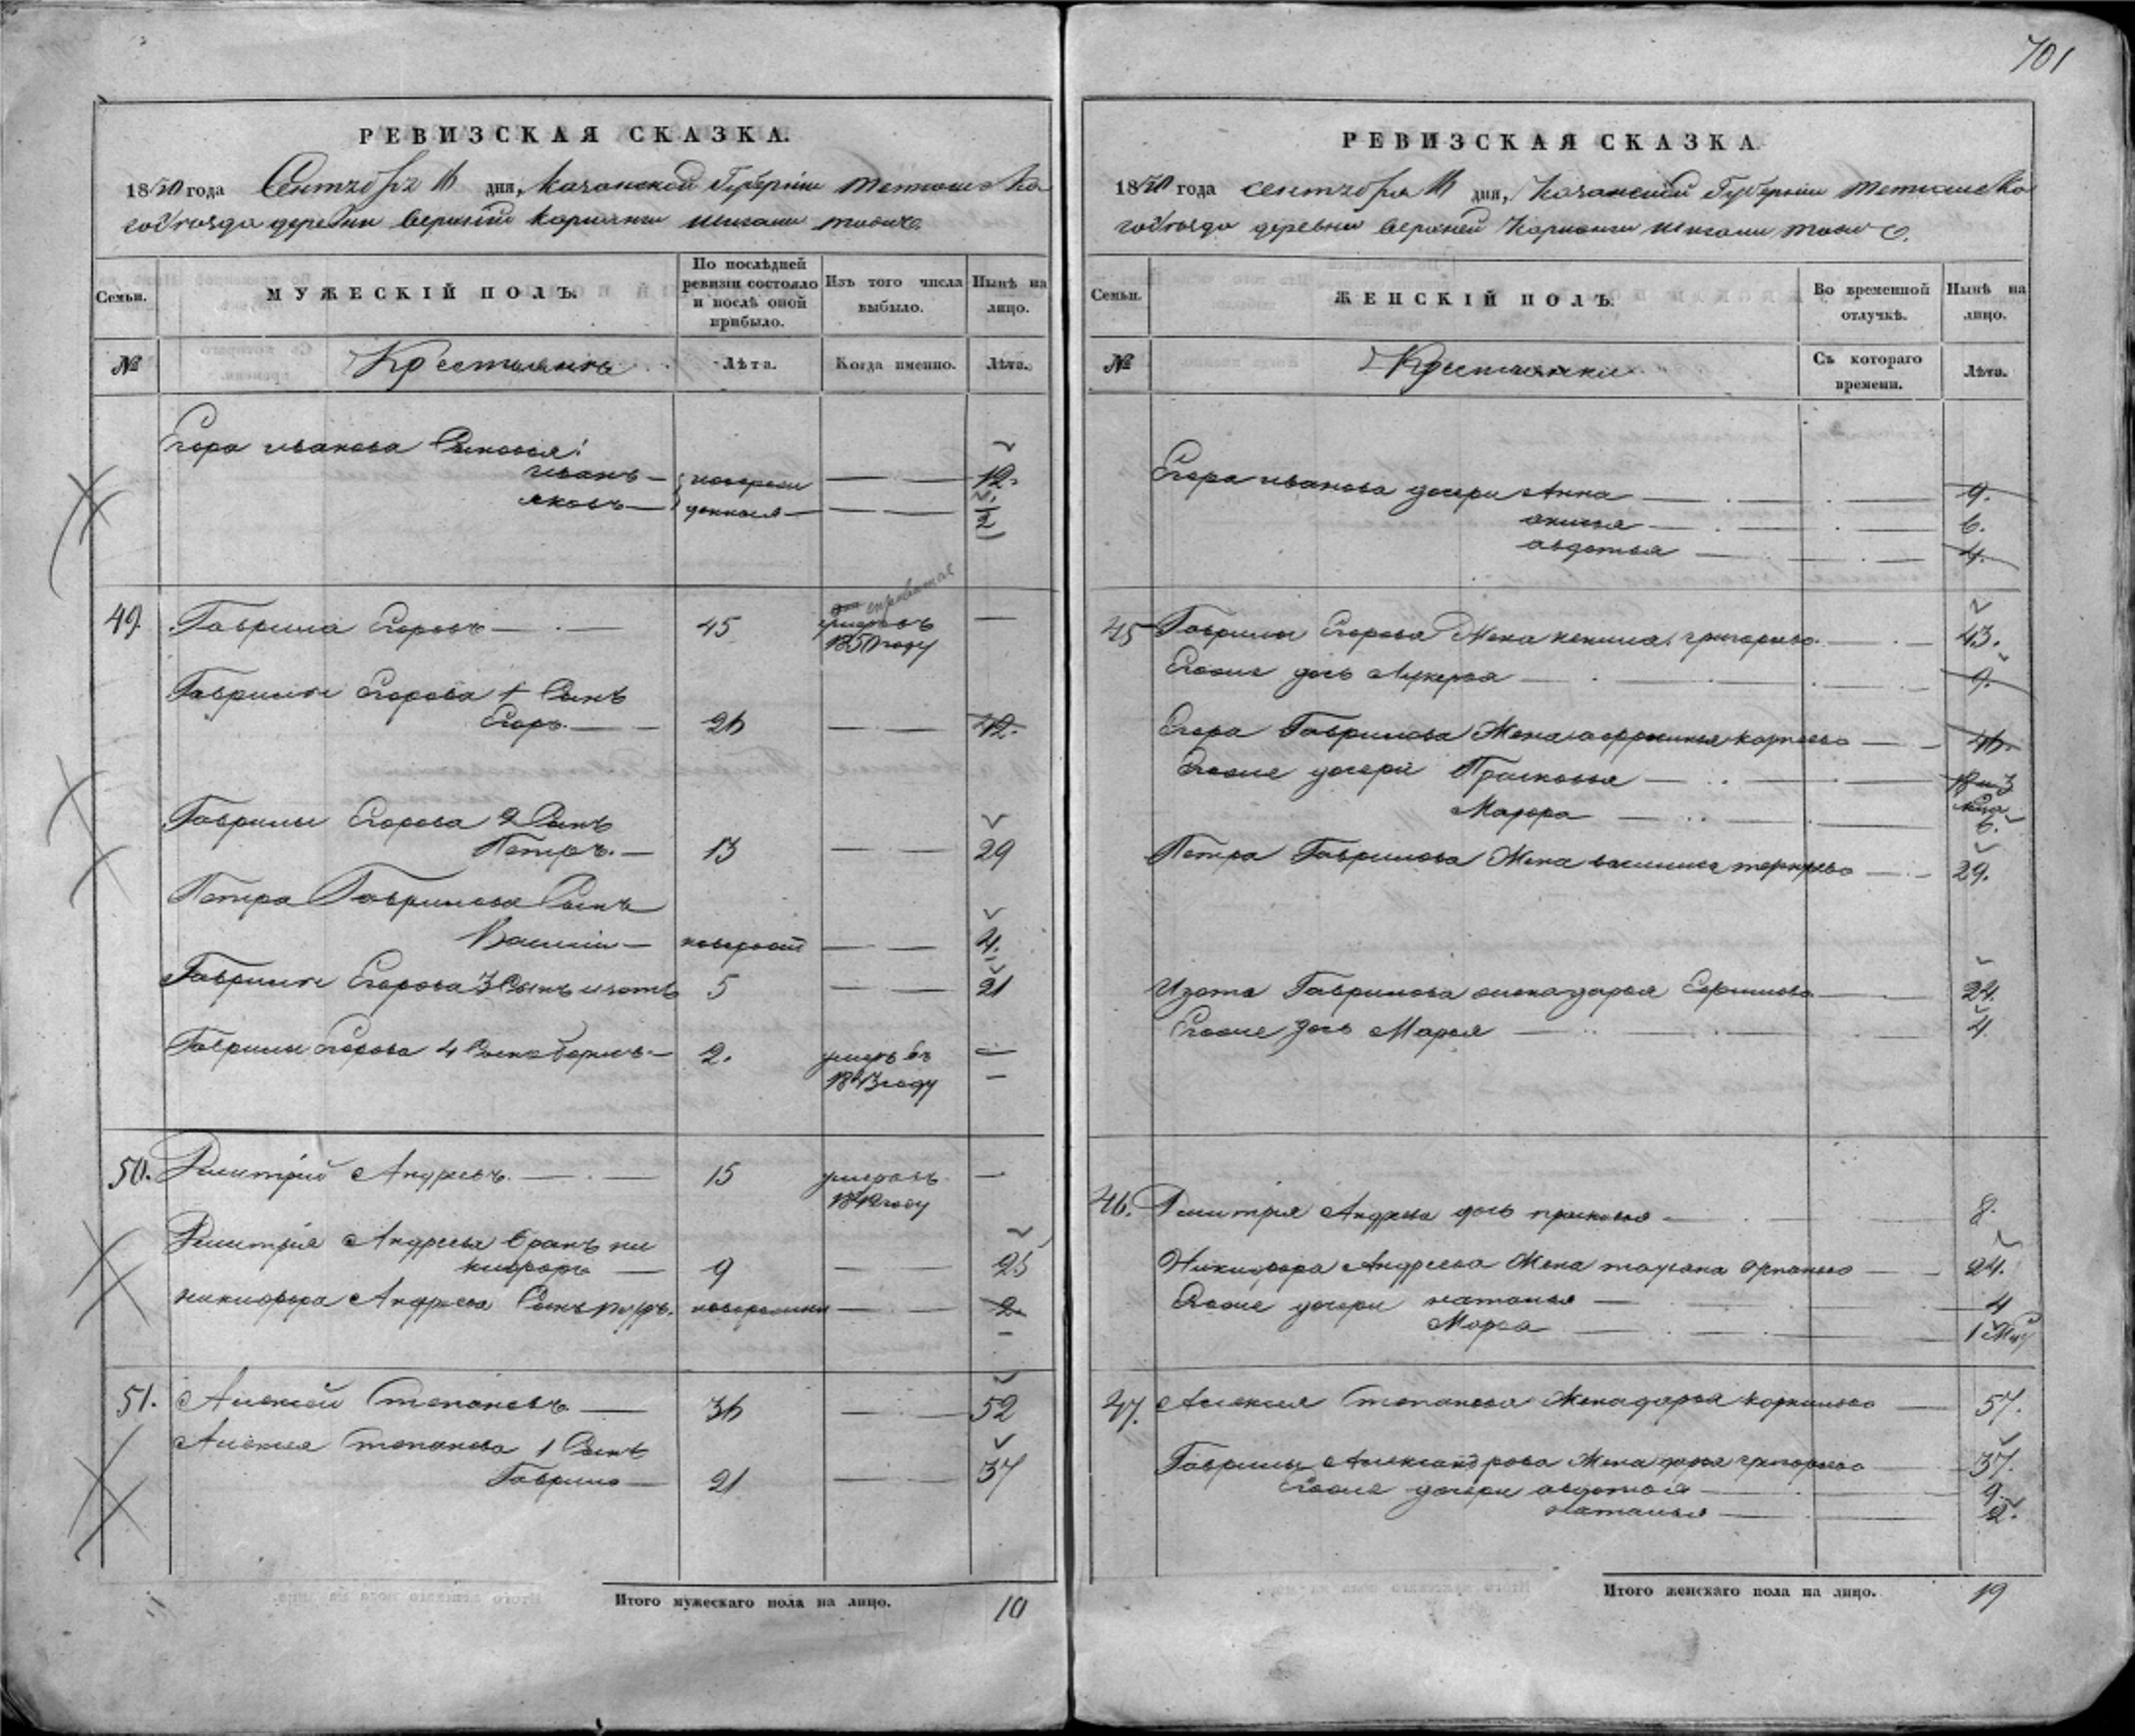 701
РЕВИЗСКАЯ СКАЗКА.
1850 года Сентября 16 дня, Казанской Губерніи Тетюшска
го Уезда деревни Верхней
Семьи.
МУЖЕСКІЙ ПОЛЪ.
По послѣдней ревизіи состояло и послѣ оной прибыло.
Изъ того числа выбыло.
Нынѣ на лицо.
№
Крестьяне
Лѣта.
Когда именно.
Лѣта.
Егора иванова Сыновья:
иванъ — новорож — — 12.
яковъ — денныя — — — 2
49. Гаврила Егоровъ — 45 умеръ въ 1850 году —
Гаврилы Егорова 1 Сынъ
Егоръ — 26 — — 42.
Гаврилы Егорова 2 Сынъ
Петръ. — 13 — — 29
Петра Гаврилова Сынъ
Василій — новорож — — 4.
Гаврилы Егорова 3 Сынъ изотъ 5 — — 21
Гаврилы Егорова 4 Сынъ борисъ — 2. умеръ въ 1843 году —
50. Дмитрій Андреевъ. — 15 умеръ въ 1842 году —
Дмитрія Андреева братъ ни
кифоръ — 9 — — 25
никифора Андреева Сынъ новорож — — 2.
51. Алексей Степановъ — 36 — — 52
Алексея Степанова 1 Сынъ
Гаврило — 21 — — 37
Итого мужескаго пола на лицо. 10
РЕВИЗСКАЯ СКАЗКА.
1850 года сентября 16 дня, Казанской Губерніи Тетюшска
го Уезда деревни Верхней
Семьи.
ЖЕНСКІЙ ПОЛЪ.
Во временной отлучкѣ.
Нынѣ на лицо.
№
Крестьянки
Съ котораго времени.
Лѣта.
Егора иванова дочери Анна — 9.
акилина — 6.
авдотья — 4.
45 Гаврилы Егорова Жена григорьева. — 43.
Егоже дочь Лукерья — 9.
Егора Гаврилова Жена — 46.
Егоже дочери Прасковья —
Мавра — 6.
Петра Гаврилова Жена василиса — 29.
Изота Гаврилова жена дарья — 24.
Егоже дочь Марья — 4.
46. Дмитрія Андреева дочь прасковья — 8.
Никифора Андреева Жена татьяна — 24.
Егоже дочери наталья — 4
Марья — 1
47. Алексея Степанова Жена дарья — 57.
Гаврилы Александрова Жена дарья григорьева — 37.
Егоже дочери авдотья — 9.
наталья — 2.
Итого женскаго пола на лицо. 19